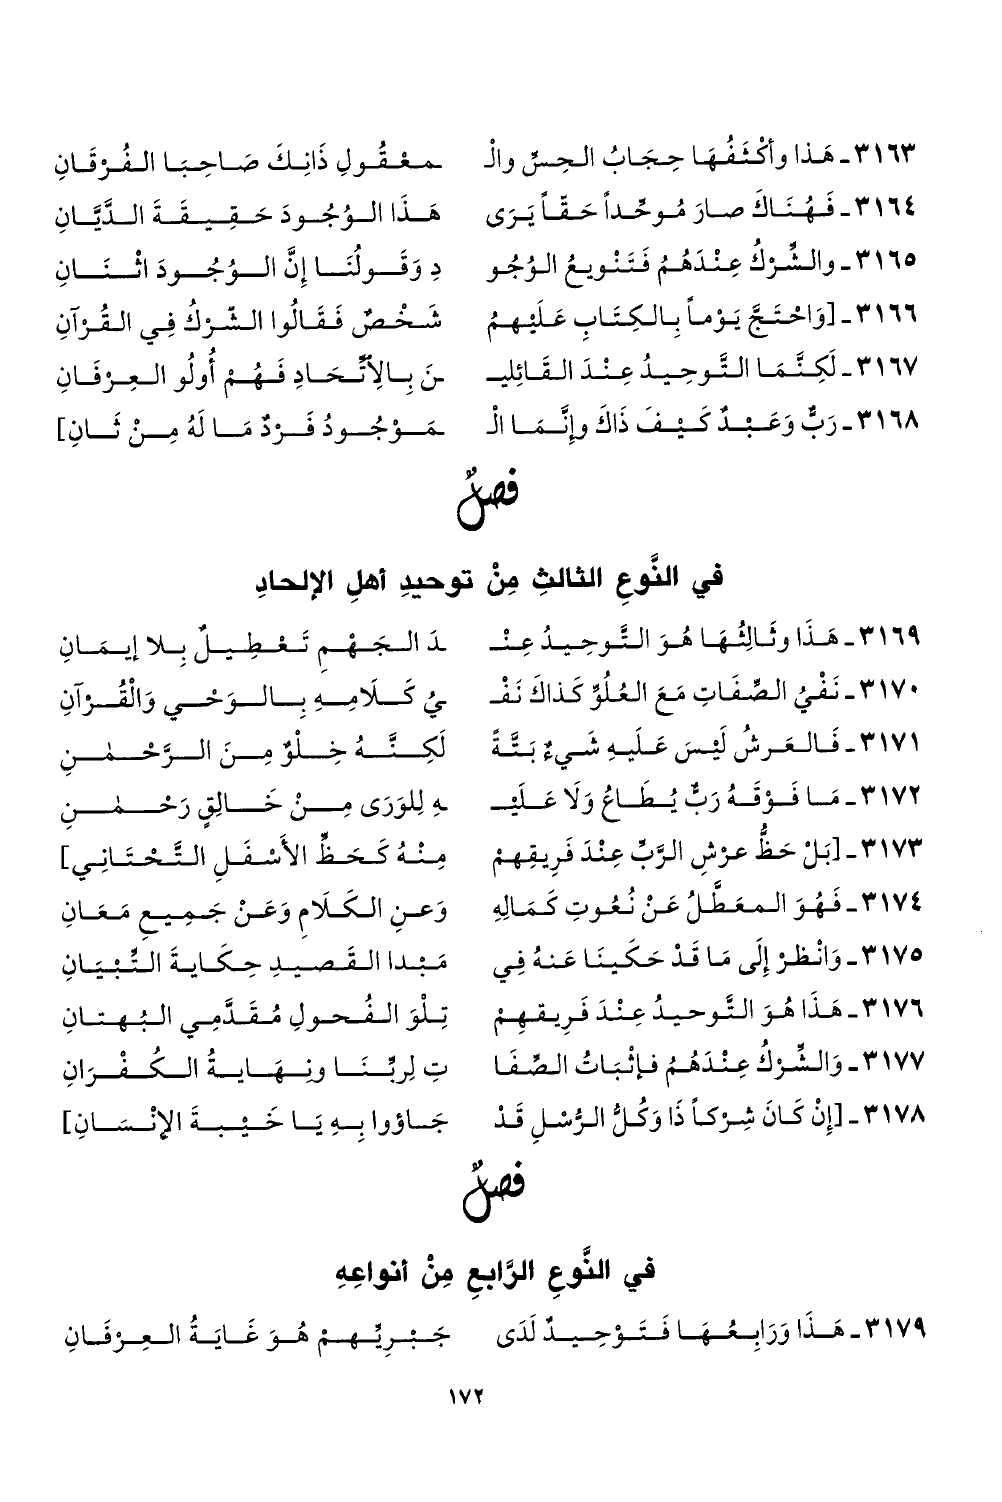 ٣١٦٣ـ هَذا وأكْثَفُهَا حِجَابُ الحِسِّ والْـ مـعْقُولِ ذَانِكَ صَاحِبَا الفُرْقَانِ
٣١٦٤ـ فَهُنَاكَ صارَ مُوحِّداً حَقّاً يَرَى هَذَا الوُجُودَ حَقِيقَةَ الدَّيَّانِ
٣١٦٥ـ والشِّرْكُ عِنْدَهُمُ فَتَنْوِيعُ الوُجُو دِ وَقَولُنَا إنَّ الوُجُودَ اثْنَانِ
٣١٦٦ـ [وَاحْتَجَّ يَوْماً بِالكِتَابِ عَلَيْهِمُ شَخْصٌ فَقَالُوا الشِّرْكُ فِي القُرْآنِ
٣١٦٧ـ لَكِنَّمَا التَّوحِيدُ عِنْدَ القَائِليـ ـنَ بِالِاتِّحَادِ فَهُمْ أُولُو العِرْفَانِ
٣١٦٨ـ رَبٌّ وَعَبْدٌ كَيْفَ ذَاكَ وإنَّمَا الْـ ـمَوْجُودُ فَرْدٌ مَا لَهُ مِنْ ثَانِ]
فصلٌ
في النَّوعِ الثالثِ مِنْ توحيدِ أهلِ الإلحادِ
٣١٦٩ـ هَذَا وثَالِثُهَا هُوَ التَّوحِيدُ عِنْـ ـدَ الجَهْمِ تَعْطِيلٌ بِلا إيمَانِ
٣١٧٠ـ نَفْيُ الصِّفَاتِ مَعَ العُلُوِّ كَذاكَ نَفْـ ـيُ كَلَامِهِ بِالوَحْيِ وَالْقُرْآنِ
٣١٧١ـ فَالعَرشُ لَيْسَ عَلَيهِ شَيءٌ بَتَّةً لَكِنَّهُ خِلْوٌ مِنَ الرَّحْمٰنِ
٣١٧٢ـ مَا فَوْقَهُ رَبٌّ يُطَاعُ وَلَا عَلَيْـ ـهِ لِلوَرَى مِنْ خَالِقٍ رَحْمٰنِ
٣١٧٣ـ [بَلْ حَظُّ عرْشِ الرَّبِّ عِنْدَ فَرِيقِهِمْ مِنْهُ كَحَظِّ الأسْفَلِ التَّحْتَانِي]
٣١٧٤ـ فَهُوَ المعَطَّلُ عَنْ نُعُوتِ كَمَالِهِ وَعنِ الكَلَامِ وَعَنْ جَمِيعِ مَعَانِ
٣١٧٥ـ وَانْظُرْ إلَى مَا قَدْ حَكَينَا عَنهُ فِي مَبْدا القَصِيدِ حِكَايةَ التِّبْيَانِ
٣١٧٦ـ هَذَا هُوَ التَّوحِيدُ عِنْدَ فَرِيقِهِمْ تِلْوَ الفُحولِ مُقَدَّمِي البُهتانِ
٣١٧٧ـ وَالشِّرْكُ عِنْدَهُمُ فإثْبَاتُ الصِّفَا تِ لِربِّنَا ونِهَايةُ الكُفْرَانِ
٣١٧٨ـ [إنْ كَانَ شِرْكاً ذَا وَكُلُّ الرُّسْلِ قَدْ جَاؤوا بهِ يَا خَيْبةَ الإنْسَانِ]
فصلٌ
في النَّوعِ الرَّابعِ مِنْ أنواعِهِ
٣١٧٩ـ هَذَا وَرَابِعُهَا فَتَوْحِيدٌ لَدَى جَبْرِيِّهِمْ هُوَ غَايَةُ العِرْفَانِ
١٧٢